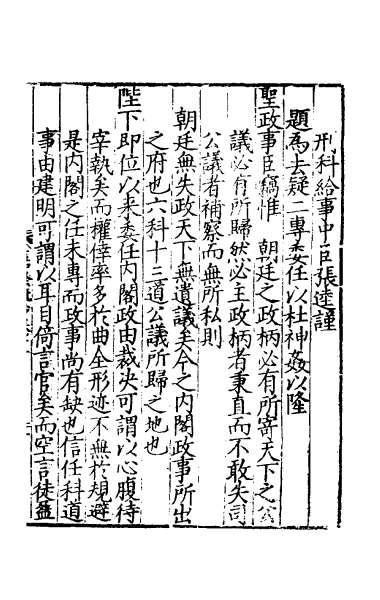 刑科給事中臣張逵謹
題為去疑二專委任以杜神姦以隆
聖政事臣竊惟　朝廷之政柄必有所寄天下之公
議必有所歸然必主政柄者秉直而不敢失司
公議者補察而無所私則
朝廷無失政天下無遺議矣今之内閣政事所出
之府也六科十三道公議所歸之地也
陛下即位以來委任内閣政由裁决可謂以心腹待
宰執矣而權倖率多於曲全形迹不無於規避
是内閣之任未專而政事尚有缺也信任科道
事由建明可謂以耳目倚言官矣而空言徒益